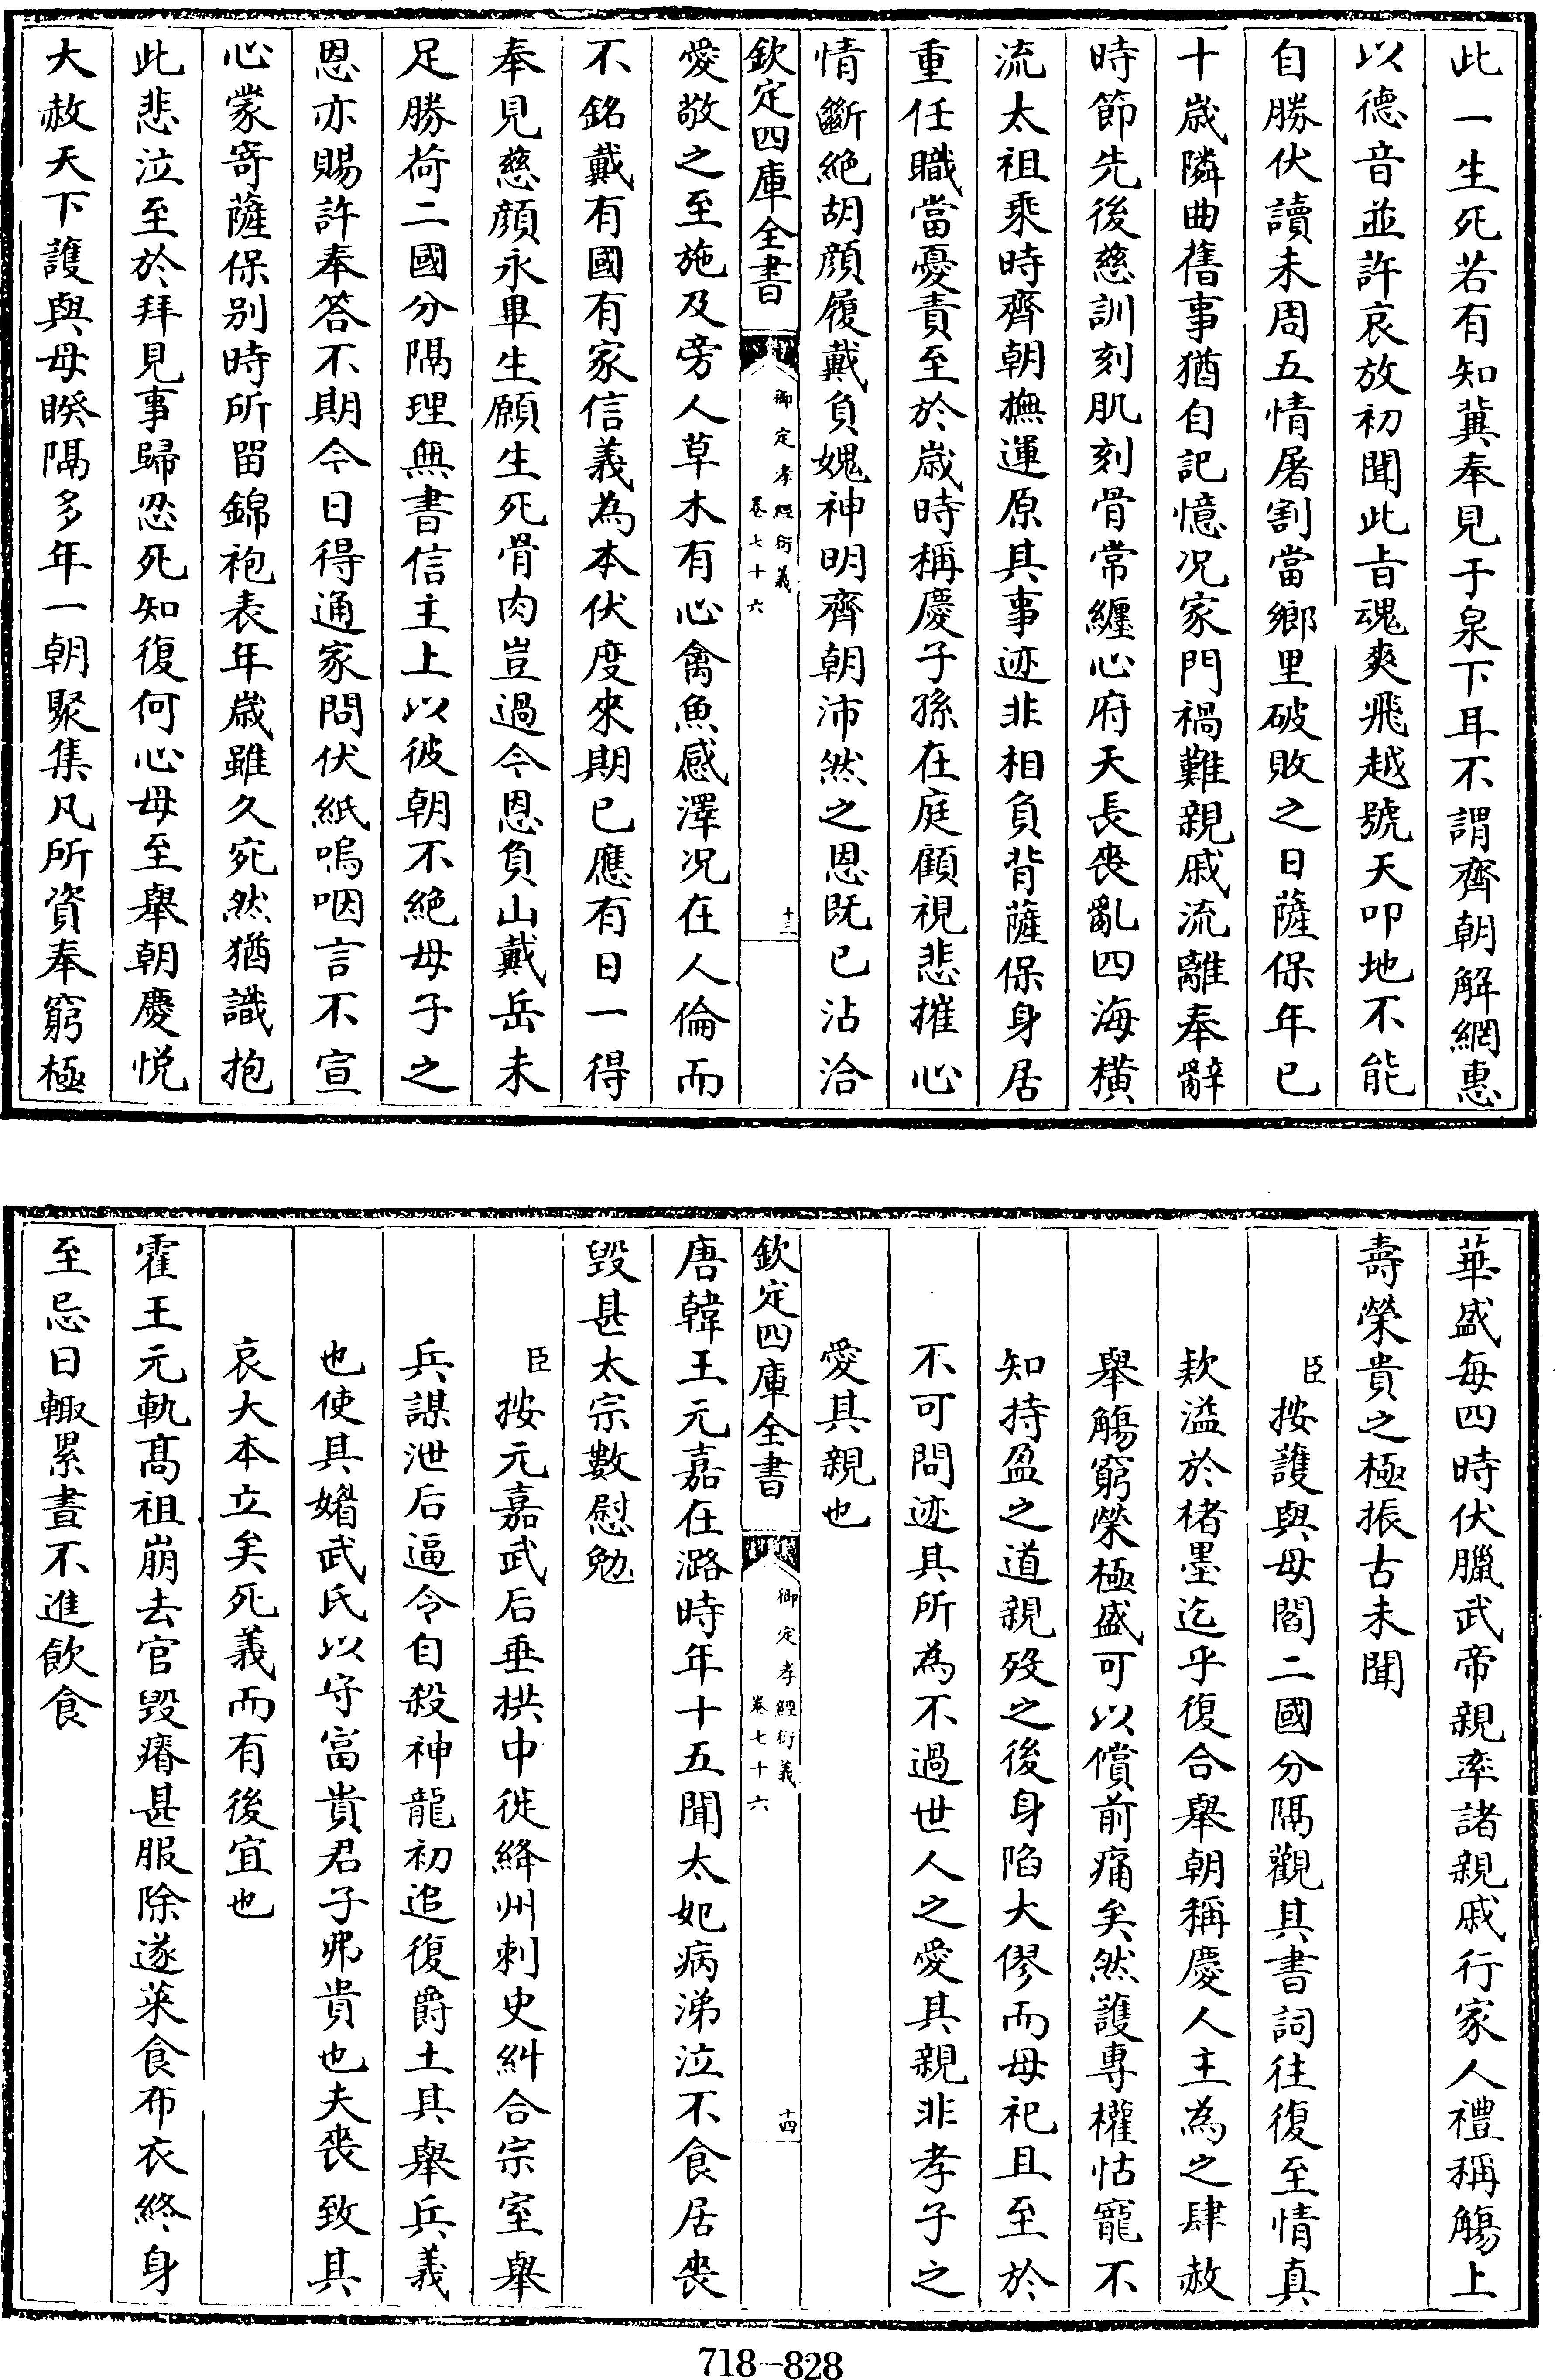 此一生死若有知冀奉見于泉下耳不謂齊朝解網惠
以德音並許哀放初聞此旨魂爽飛越號天叩地不能
自勝伏讀未周五情屠割當鄉里破敗之日薩保年已
十歲隣曲舊事猶自記憶况家門禍難親戚流離奉辭
時節先後慈訓刻肌刻骨常纏心府天長喪亂四海橫
流太祖乘時齊朝撫運原其事迹非相負背薩保身居
重任職當憂責至於歲時稱慶子孫在庭顧視悲摧心
情斷絶胡顔履戴負媿神明齊朝沛然之恩既已沾洽
欽定四庫全書
御定孝經衍義
卷七十六
十三
愛敬之至施及旁人草木有心禽魚感澤况在人倫而
不銘戴有國有家信義為本伏度來期已應有日一得
奉見慈顔永畢生願生死骨肉豈過今恩負山戴岳未
足勝荷二國分隔理無書信主上以彼朝不絶母子之
恩亦賜許奉答不期今日得通家問伏紙嗚咽言不宣
心蒙寄薩保别時所留錦袍表年歲雖久宛然猶識抱
此悲泣至於拜見事歸忍死知復何心母至舉朝慶悦
大赦天下護與母暌隔多年一朝聚集凡所資奉窮極
華盛每四時伏臘武帝親率諸親戚行家人禮稱觴上
壽榮貴之極振古未聞
臣按護與母閻二國分隔觀其書詞往復至情真
欵溢於楮墨迄乎復合舉朝稱慶人主為之肆赦
舉觴窮榮極盛可以償前痛矣然護專權怙寵不
知持盈之道親歿之後身陷大僇而母祀且至於
不可問迹其所為不過世人之愛其親非孝子之
愛其親也
欽定四庫全書
御定孝經衍義
卷七十六
十四
唐韓王元嘉在潞時年十五聞太妃病涕泣不食居喪
毀甚太宗數慰勉
臣按元嘉武后垂拱中徙絳州刺史糾合宗室舉
兵謀泄后逼令自殺神龍初追復爵土其舉兵義
也使其媚武氏以守富貴君子弗貴也夫喪致其
哀大本立矣死義而有後宜也
霍王元軌髙祖崩去官毀瘠甚服除遂菜食布衣終身
至忌日輙累晝不進飲食
718-828